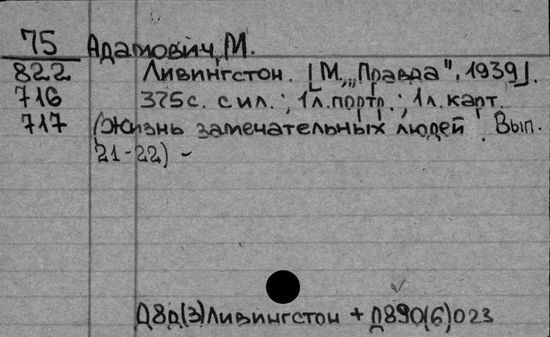 75 Адамович, М.
822 Ливингстон. [М., „Правда", 1939].
716 375с. с ил.; 1л. портр.; 1л. карт.
717 (Жизнь замечательных людей. Вып.
21-22) -
Д8д(3)Ливингстон + Д890(6)023